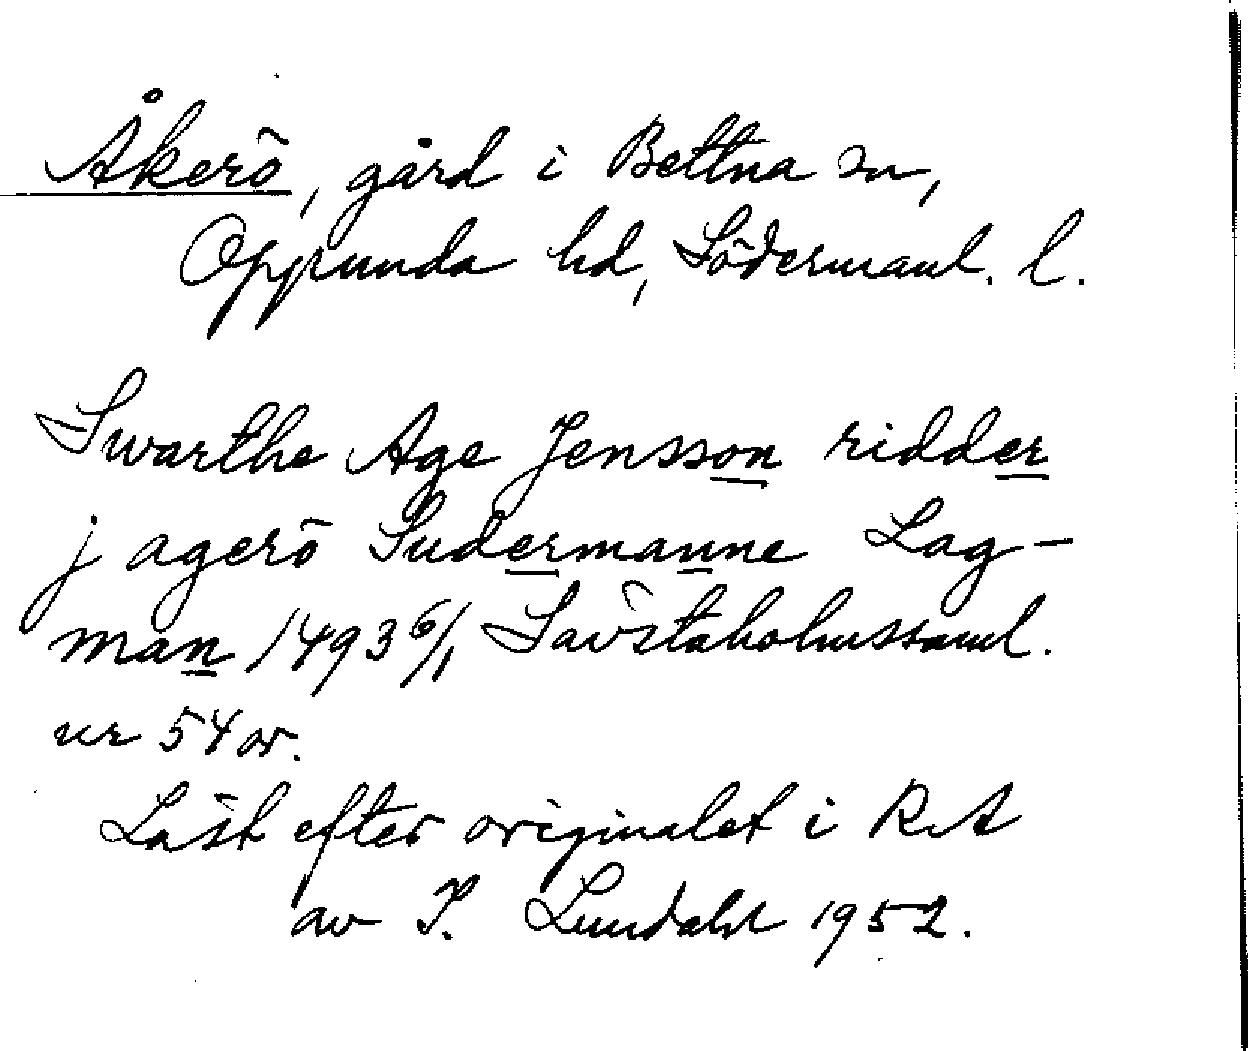 Åkerö, gård i Bettna sn,
Oppunda hd, Södermanl. l.
Swarthe Age Jensson ridder
j agerö Sudermanne Lag-
man 1493 6/1 Sävstaholmssaml.
nr 54 or.
Läst efter originalet i RA
av I. Lundahl 1952.